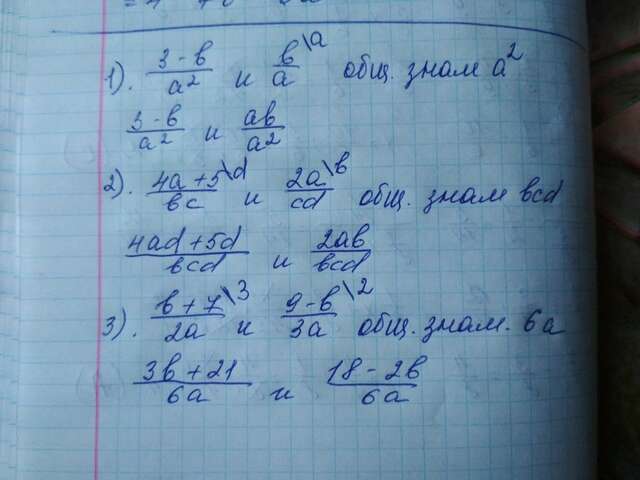 1). (3-в)/a² и в/a \a общ. знам a²
(3-в)/a² и aв/a²
2). (4a+5)/вc \d и 2a/cd \в общ. знам вcd
(4ad+5d)/вcd и 2aв/вcd
3). (в+7)/2a \3 и (9-в)/3a \2 общ. знам. 6a
(3в+21)/6a и (18-2в)/6a